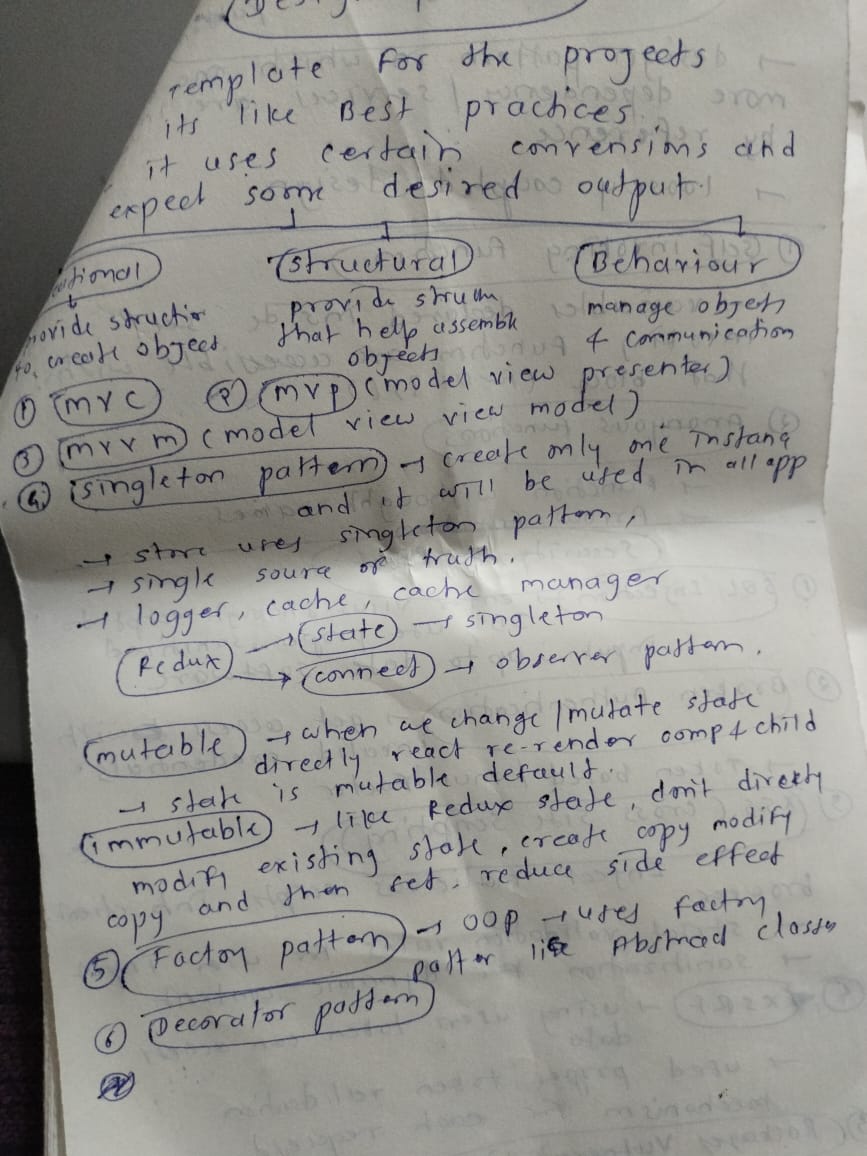 Template for the projects
its like Best practices
it uses certain convensions and
expect some desired output
ational Structural Behaviour
provide structio provide struen manage objets
to create object that help assemble & communication
objects
① mvc ② mvp (model view presenter)
③ mvvm (model view view model)
④ singleton pattern → create only one instanc
and it will be used in all app
→ store uses singleton pattern,
→ single sourc of truth.
→ logger, cache, cache manager
Redux → state → singleton
→ connect → observer pattern.
mutable → when we change / mutate state
directly react re-render comp & child
→ state is mutable default.
immutable → like Redux state, don't directly
modify existing state, create copy modify
copy and then set. reduce side effect
⑤ Factory pattern → OOP → uses factory
patter like Abstract classes
⑥ Decorator pattern